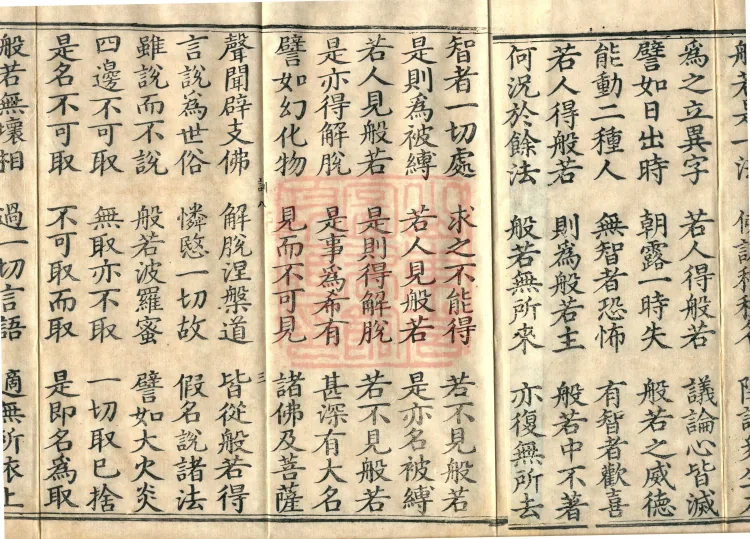 爲之立異字 若人得般若 議論心皆滅
譬如日出時 朝露一時失 般若之威德
能動二種人 無智者恐怖 有智者歡喜
若人得般若 則爲般若主 般若中不著
何況於餘法 般若無所來 亦復無所去
智者一切處 求之不能得 若不見般若
是則為被縛 若人見般若 是亦名被縛
若人見般若 是則得解脫 若不見般若
是亦得解脫 是事為希有 甚深有大名
譬如幻化物 見而不可見 諸佛及菩薩
訓八 三
聲聞辟支佛 解脫涅槃道 皆從般若得
言說為世俗 憐愍一切故 假名說諸法
雖說而不說 般若波羅蜜 譬如大火炎
四邊不可取 無取亦不取 一切取已捨
是名不可取 不可取而取 是即名為取
般若無壞相 過一切言語 適無所依止